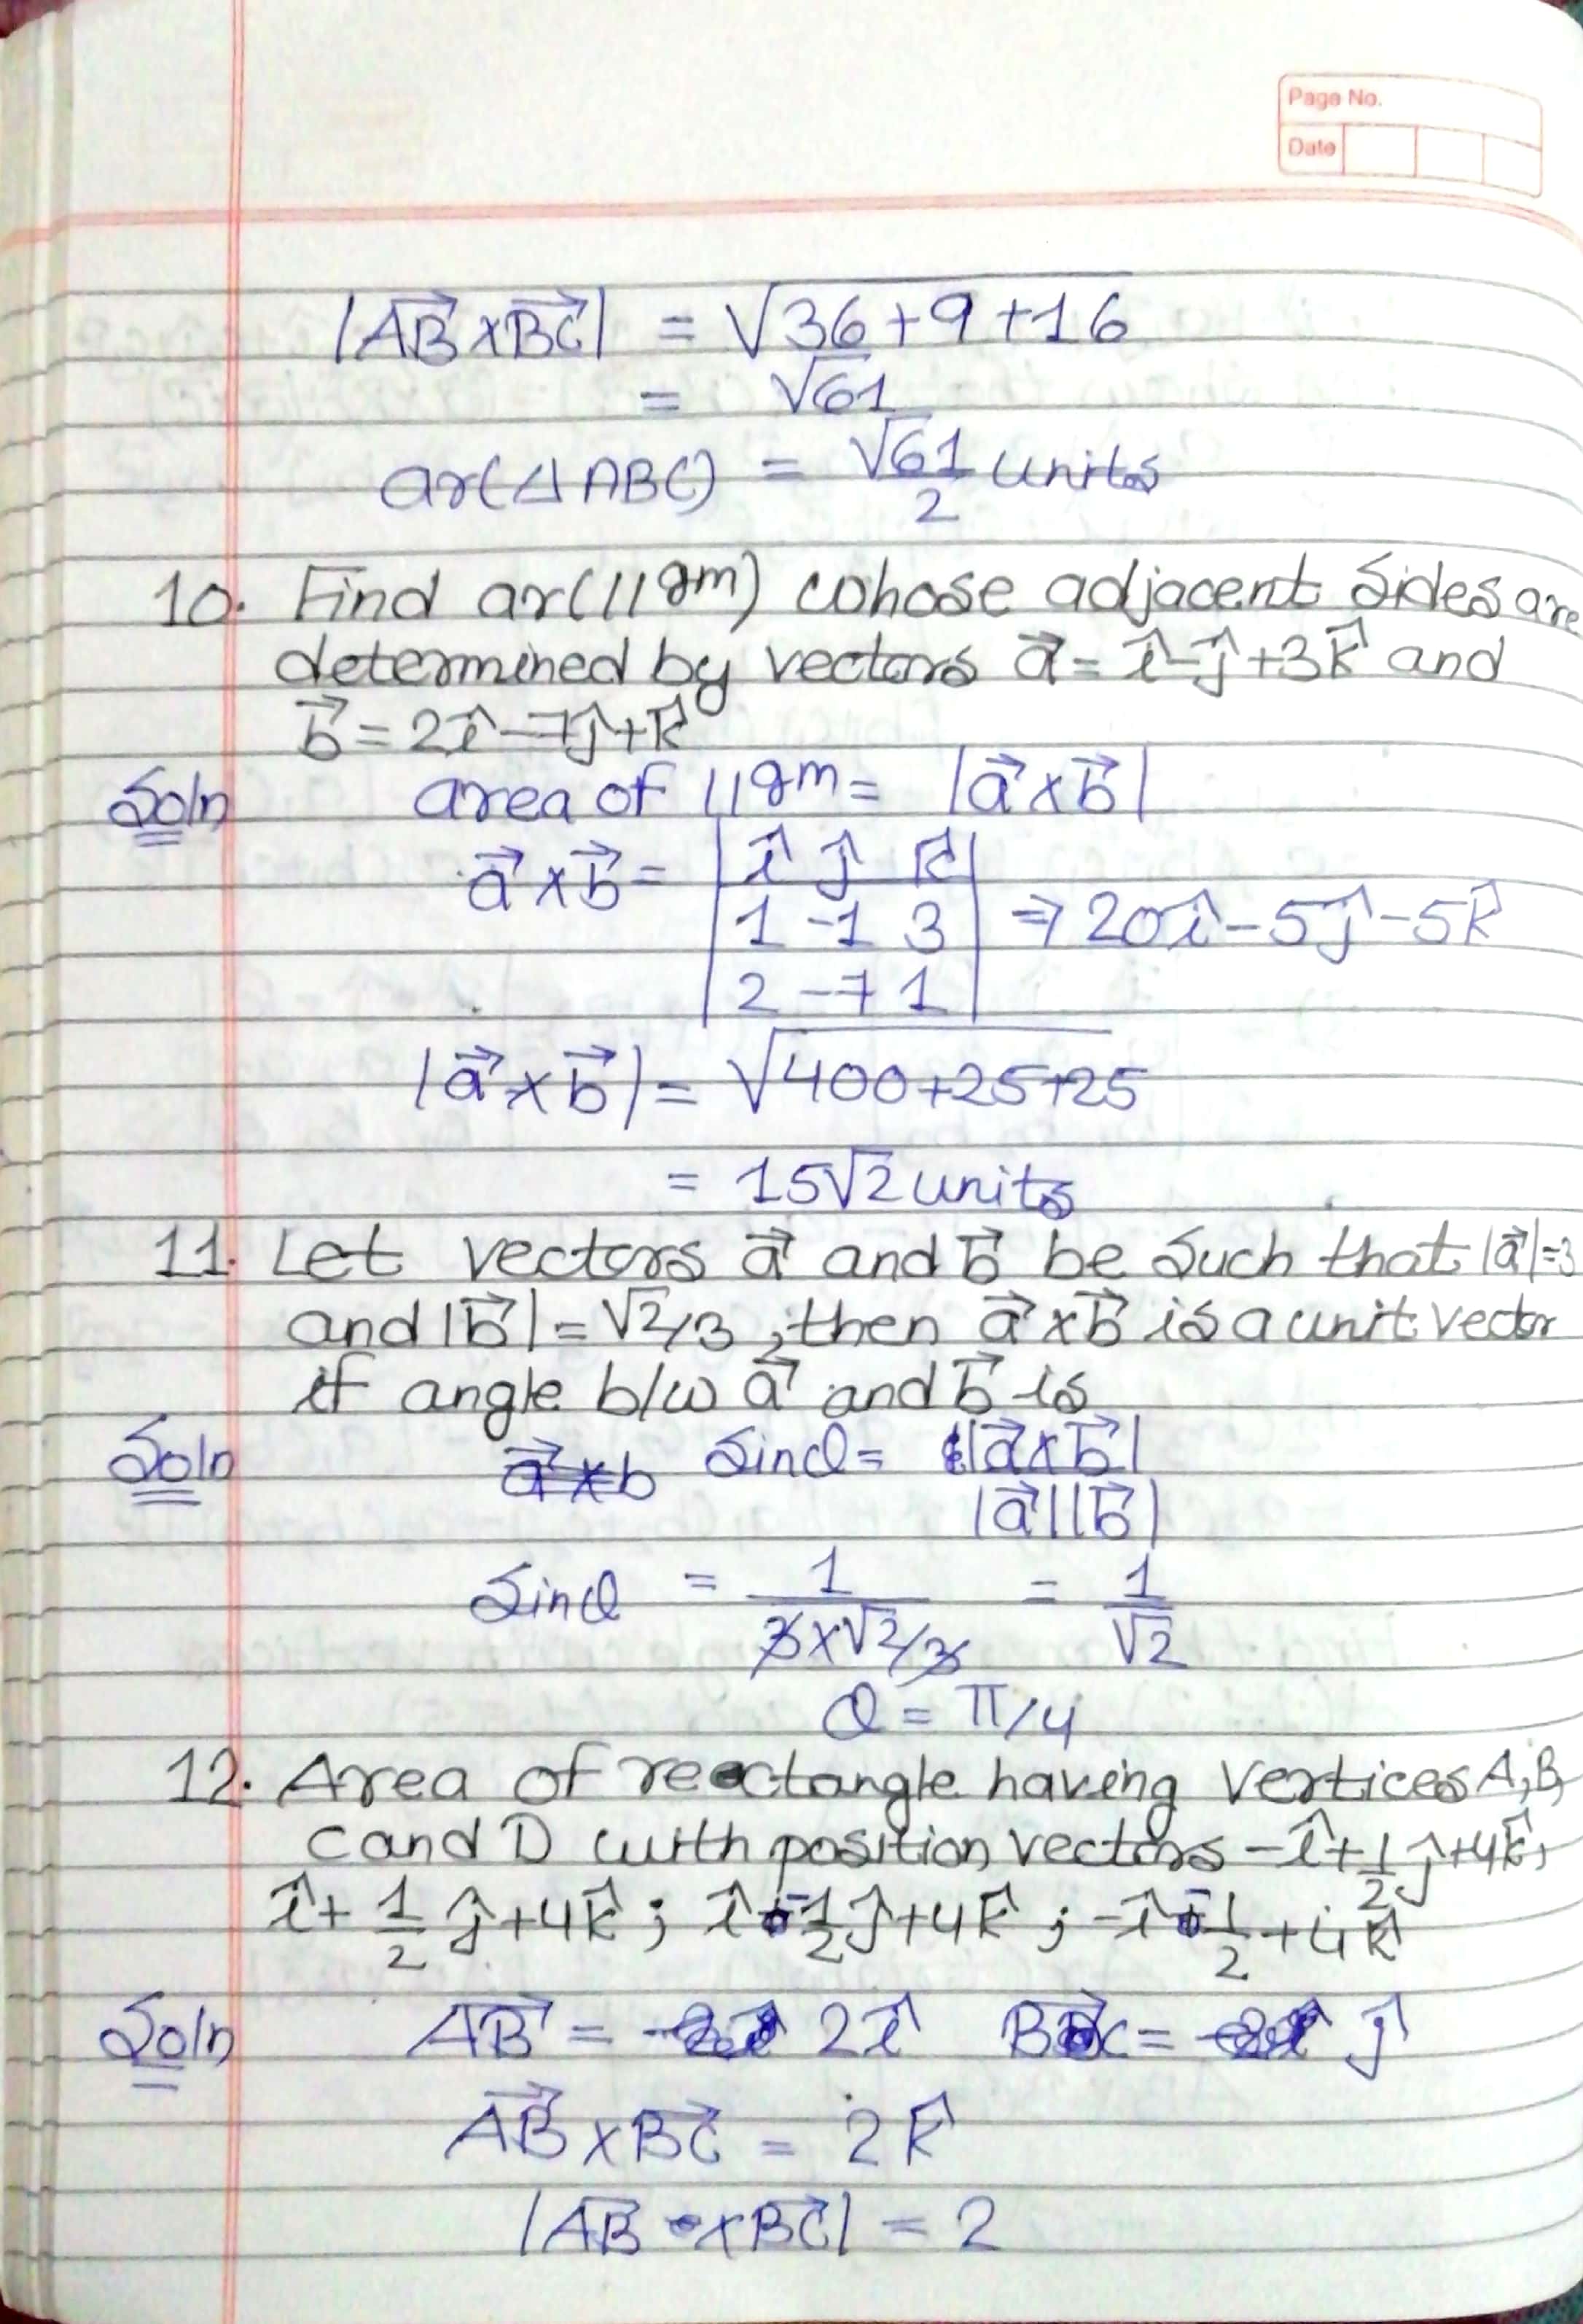 Page No.
Date
|AB⃗ × BC⃗| = √36+9+16
= √61
ar(△ABC) = √61/2 units
10. Find ar(11gm) whose adjacent sides are
determined by vectors a⃗ = î-ĵ+3k̂ and
b⃗ = 2î-7ĵ+k̂
Soln area of 11gm = |a⃗×b⃗|
a⃗×b⃗ = | î ĵ k̂ |
| 1 -1 3 | ⇒ 20î-5ĵ-5k̂
| 2 -7 1 |
|a⃗×b⃗| = √400+25+25
= 15√2 units
11. Let vectors a⃗ and b⃗ be such that |a⃗|=3
and |b⃗| = √2/3, then a⃗×b⃗ is a unit vector
if angle b/w a⃗ and b⃗ is
Soln sinθ = |a⃗×b⃗|
|a⃗||b⃗|
sinθ = 1/(3×√2/3) = 1/√2
θ = π/4
12. Area of rectangle having vertices A, B,
C and D with position vectors -î+1/2ĵ+4k̂,
î+1/2ĵ+4k̂; î-1/2ĵ+4k̂; -î-1/2+4k̂
Soln AB⃗ = 2î BC = ĵ
AB⃗×BC⃗ = 2k̂
|AB×BC⃗| = 2